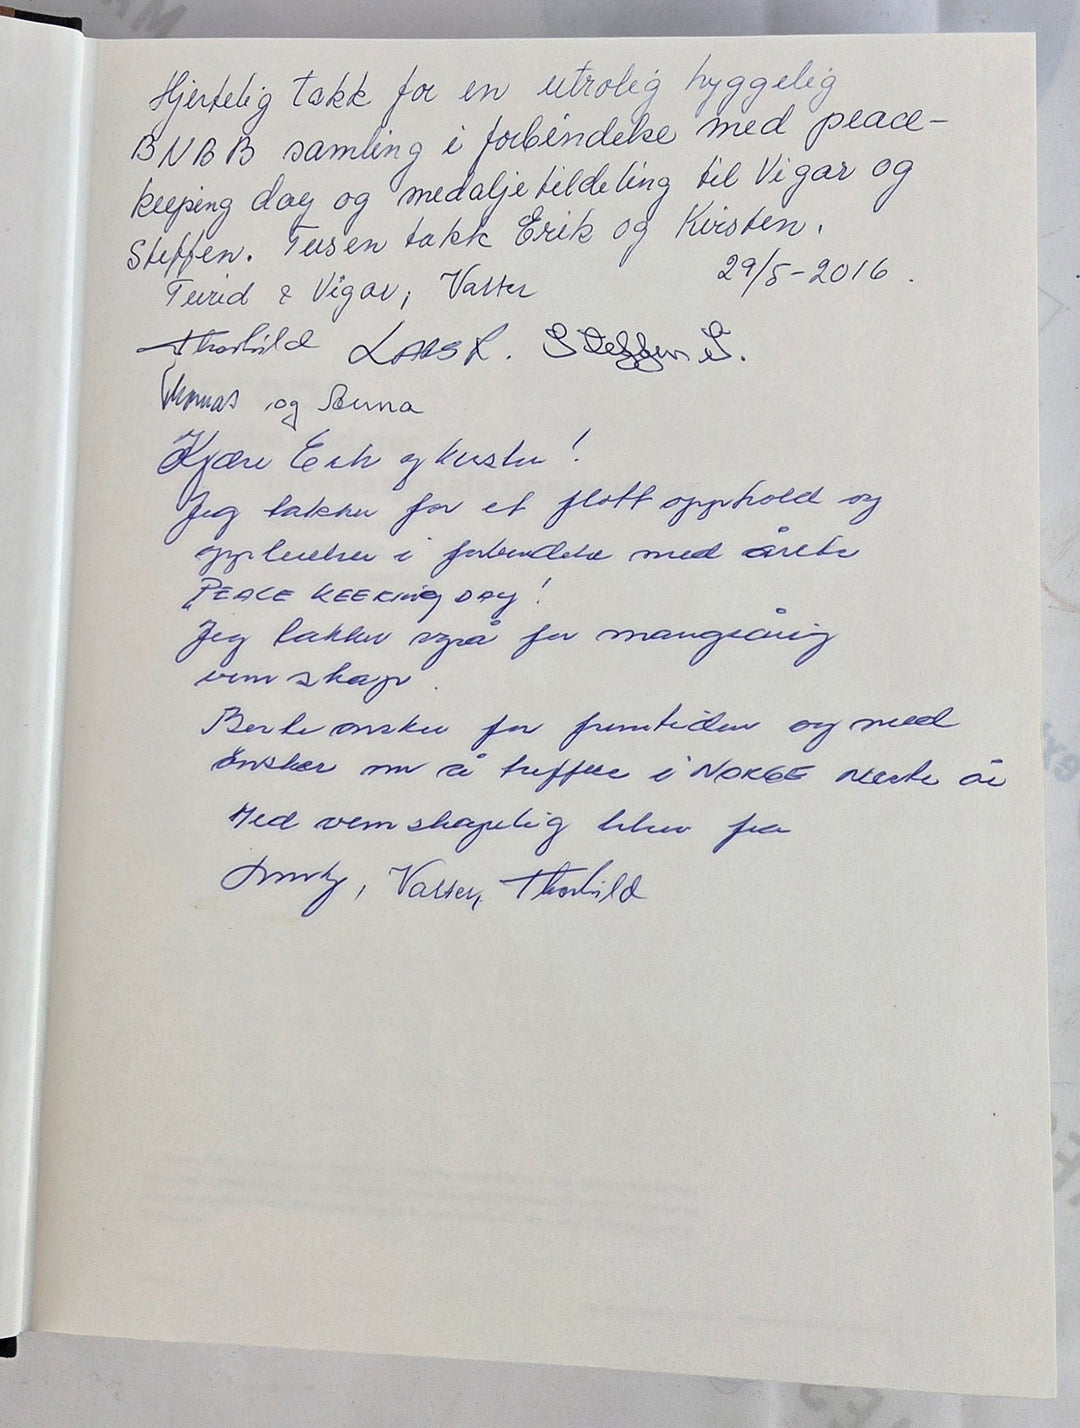 Hjertelig takk for en utrolig hyggelig
BNBB samling i forbindelse med peace-
keeping day og medaljetildeling til Vigar og
Steffen. Tusen takk Erik og Kirsten.
29/5-2016.
Turid & Vigar, Valter
Thorhild LARS L. Steffen S.
Thomas og
Kjære Erik og Kirsten!
Jeg takker for et flott opphold og
opplevelser i forbindelse med årets
PEACE KEEPING DAY!
Jeg takker også for mangeårig
vennskap.
Beste ønsker for fremtiden og med
ønsker om å treffes i NORGE neste år
Med vennskapelig hilsen fra
Valter, Thorhild